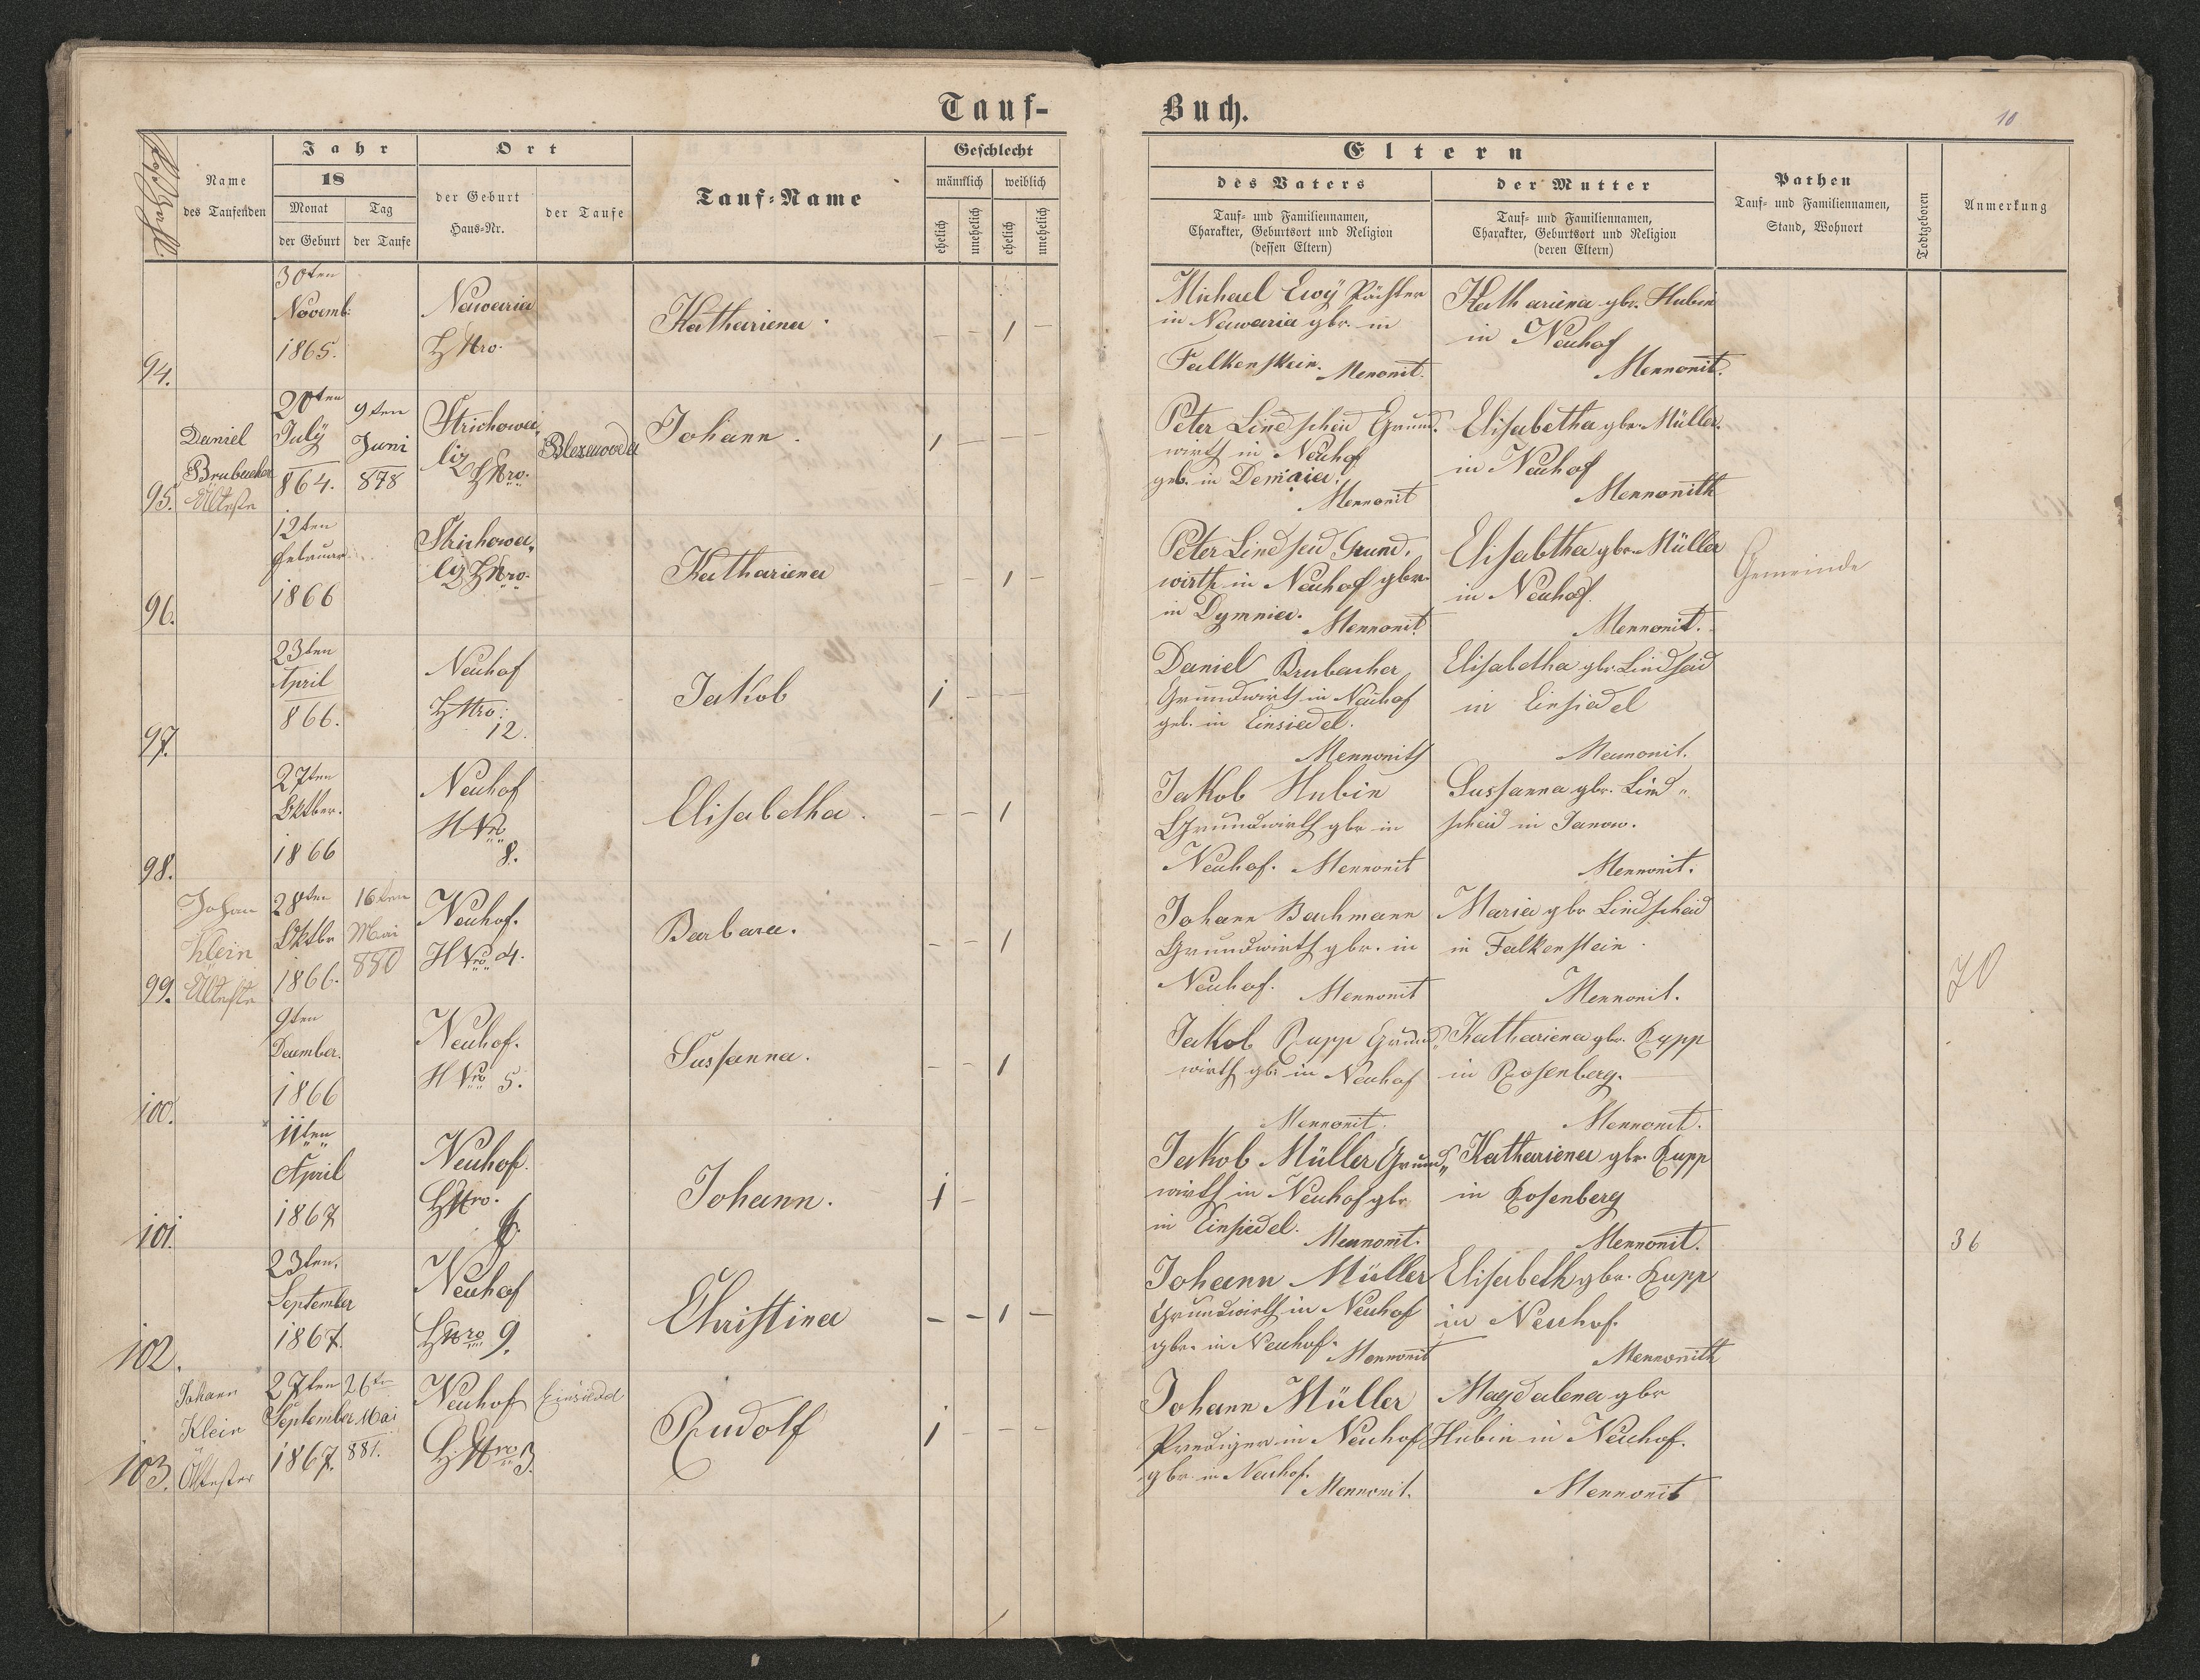 Tauf-
Buch.
10
Name
des Taufenden
Jahr
18
Monat
Tag
der Geburt
der Taufe
Ort
der Geburt
Haus-Nr.
der Taufe
Tauf-Name
Geschlecht
männlich
weiblich
ehelich
unehelich
ehelich
unehelich
Eltern
des Vaters
Tauf- und Familiennamen,
Charakter, Geburtsort und Religion
(dessen Eltern)
der Mutter
Tauf- und Familiennamen,
Charakter, Geburtsort und Religion
(deren Eltern)
Pathen
Tauf- und Familiennamen,
Stand, Wohnort
Todtgeboren
Anmerkung
94.
30ten
Novemb.
1865.
Nawaria
HNro.
Kathariena.
– – 1 –
Michael Ewy Pächter
in Nawaria gbr. in
Falkenstein. Menonit.
Kathariena gbr. Hubin
in Neuhof
Mennonit.
95.
Daniel
Brubacher
Älteste
20ten
July
864.
9ten
Juni
878
Strichowa,
liz HNro.
Johann.
1 – – –
Peter Lindscheid Grund,
wirth in Neuhof
geb. in
Mennonit
Elisabetha gbr. Müller.
in Neuhof
Mennonith
96.
12ten
Februar
1866
Strichowa,
liz HNro.
Kathariena
– – 1 –
Peter Lindseid Grund,
wirth in Neuhof gbr.
in Dymnia. Mennonit.
Elisabtha gbr. Müller
in Neuhof.
Mennonit.
Gemeinde
97.
23ten
April
866.
Neuhof
HNro.
12.
Jakob
1 – – –
Daniel Brubacher
Grundwirth in Neuhof
geb. in Einsiedel.
Mennonith
Elisabetha gbr. Lindseid
in Einsiedel
Mennonit.
98.
27ten
Oktber.
1866
Neuhof
HNro
8.
Elisabetha.
– – 1
Jakob Hubin
Grundwirth gbr in
Neuhof. Mennonit
Sussanna gbr. Lind„
scheid in Janow.
Mennonit.
99.
Johan
Klein
Älteste
28ten
Oktbr
1866.
16ten
Mai
880
Neuhof.
HNro 4.
Barbara.
– – 1
Johann Bachmann
Grundwirth gbr. in
Neuhof. Mennonit
Maria gbr Lindscheid
in Falkenstein.
Mennonit.
70
100.
9ten
December.
1866
Neuhof.
HNro 5.
Sussanna.
– – 1
Jakob Rupp Grund„
wirth gbr in Neuhof
Mennonit.
Kathariena gbr. Rupp
in Rosenberg.
Mennonit.
101.
11ten
April
1867
Neuhof.
HNro.
Johann.
1 –
Jakob Müller Grund„
wirth in Neuhof gbr
in Einsiedel. Mennonit.
Kathariena gbr. Rupp
in Rosenberg
Mennonit.
36
102.
23ten.
September
1867.
Neuhof
HNro 9.
Christina
– – 1 –
Johann Müller
Grundwirth in Neuhof
gbr. in Neuhof.
Mennonit
Elisabeth gbr. Rupp
in Neuhof.
Mennonith
103.
Johann
Klein
Ältester
27ten
September
1867.
26ten
Mai
881.
Neuhof
HNro 3.
Einsiedel
Rudolf
1 – – –
Johann Müller
Prediger in Neuhof
gbr. in Neuhof.
Mennonit.
Magdalena gbr
Hubin in Neuhof.
Mennonit